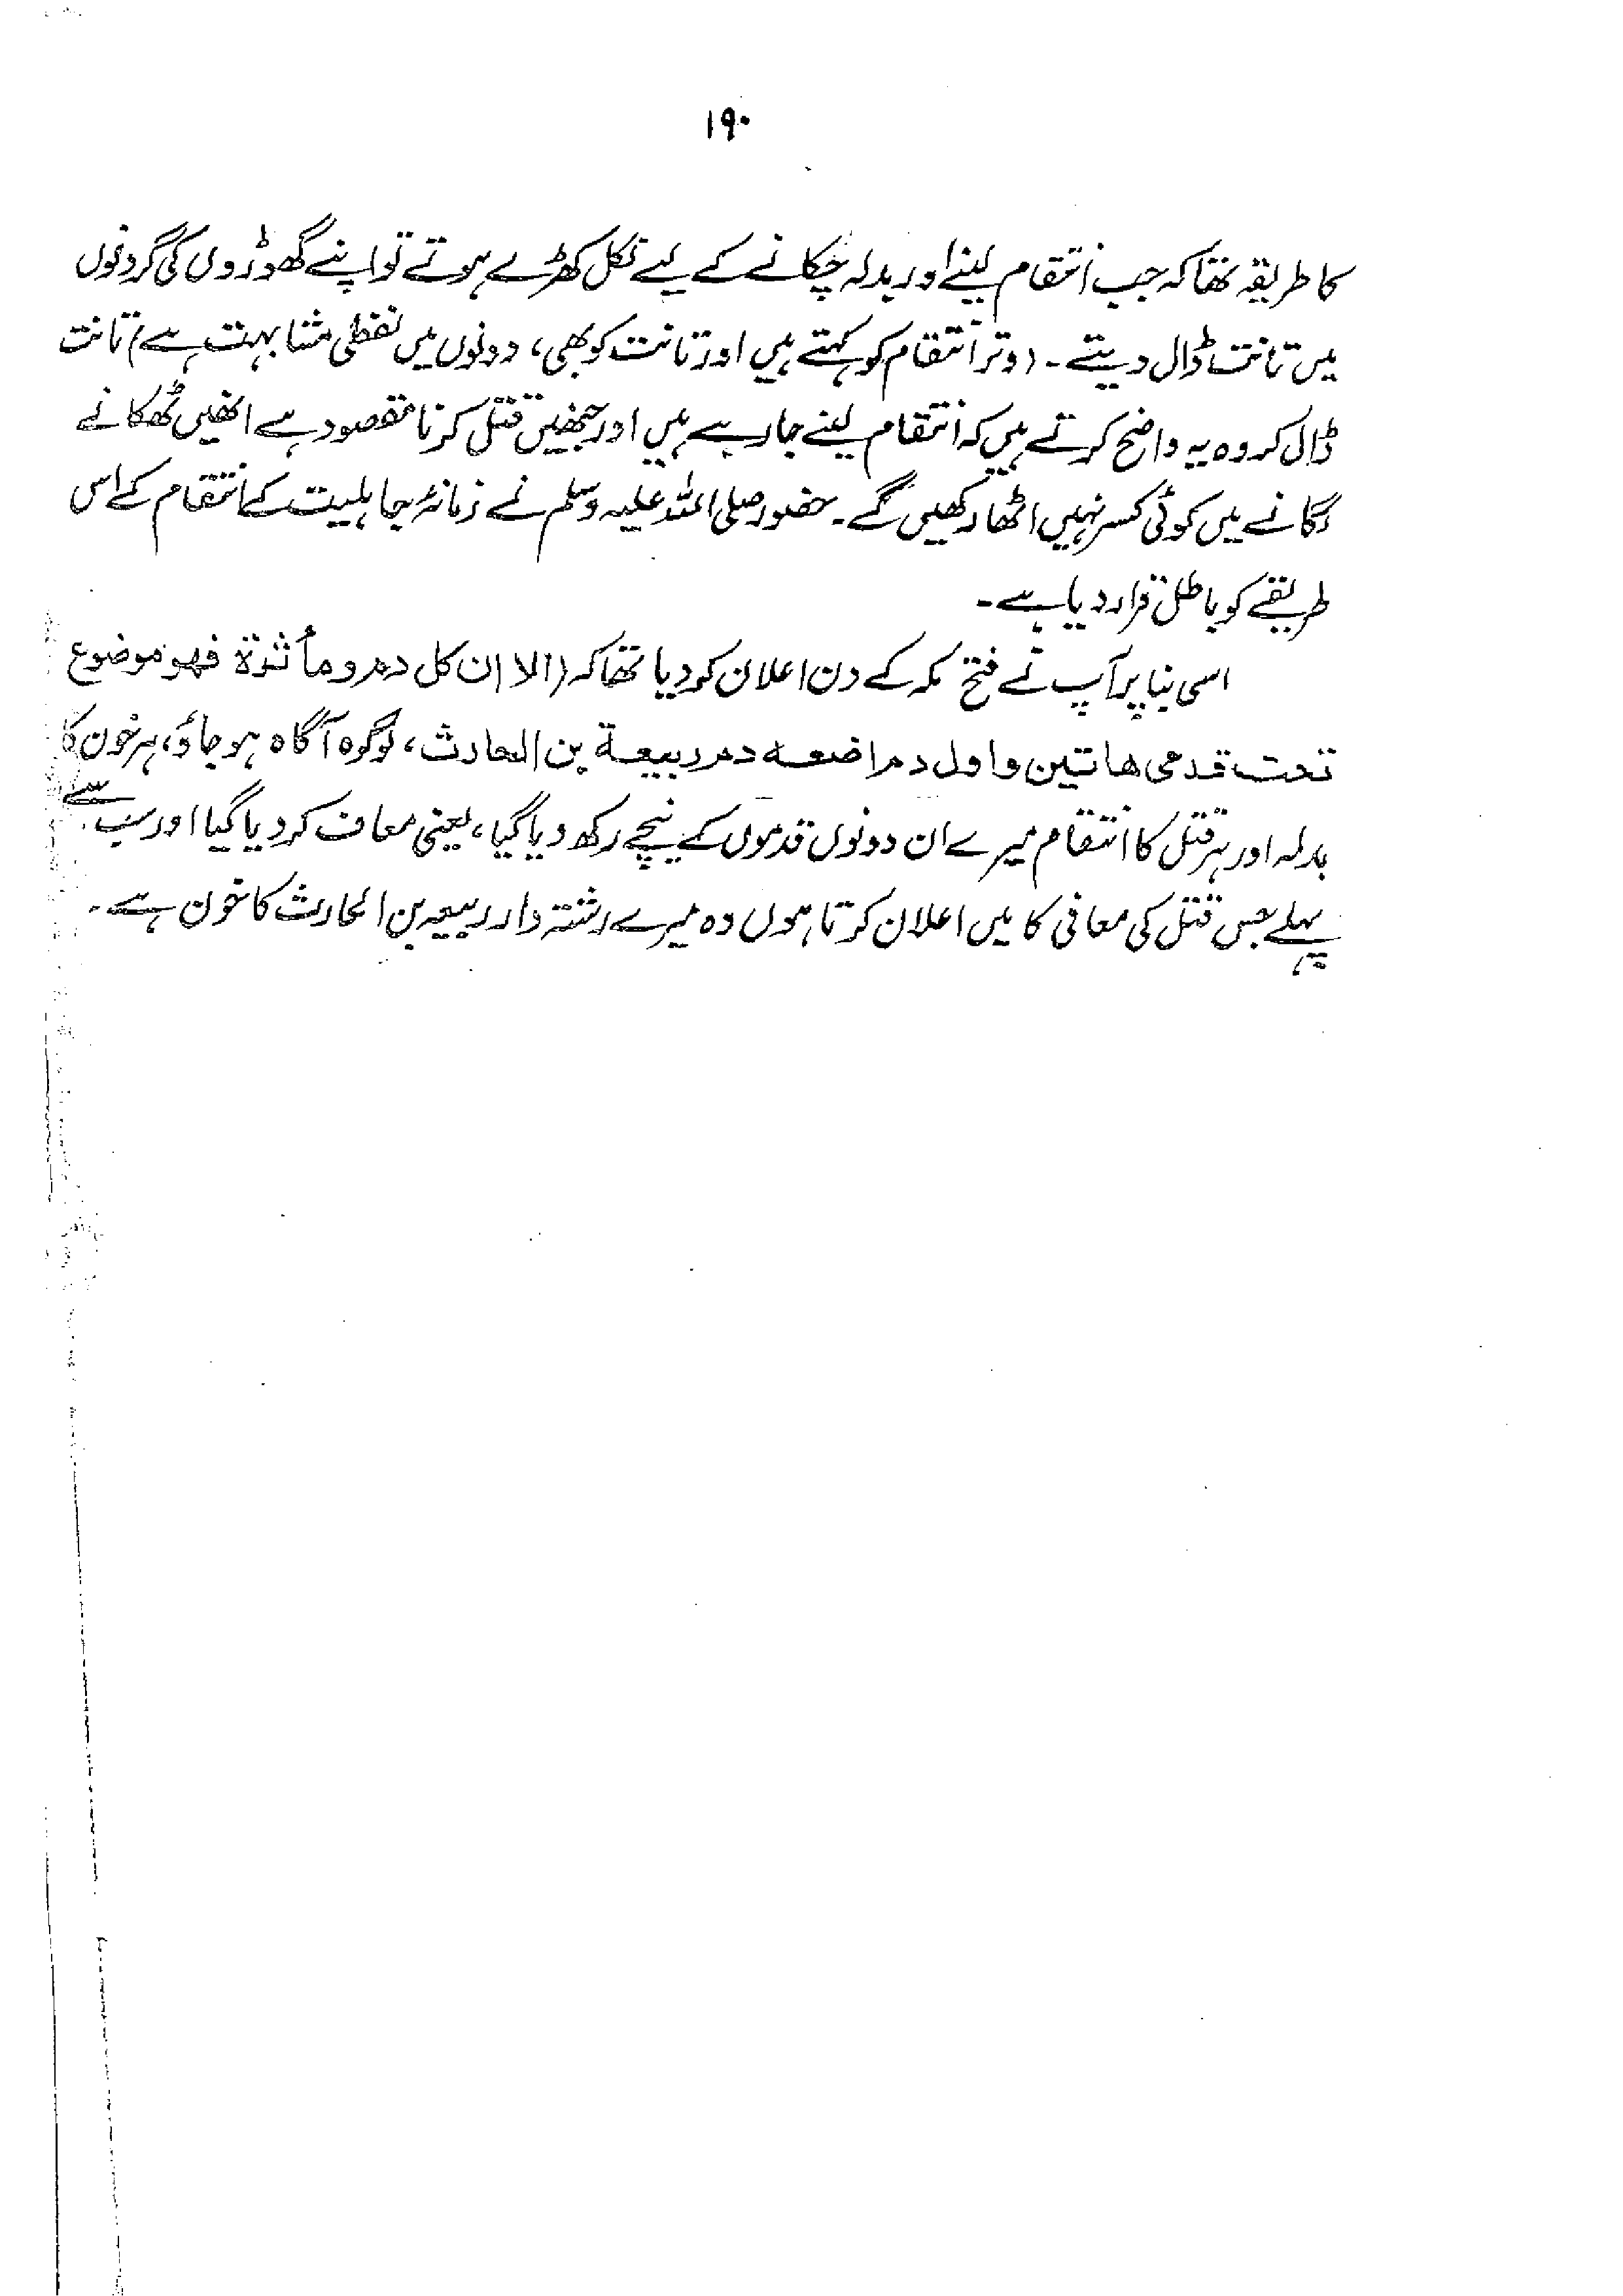 ۱۹۰
کا طریقہ تھا کہ جب انتقام لینے اور بدلہ چکانے کے لیے نکل کھڑے ہوتے تو اپنے گھوڑوں کی گردنوں
میں تانت ڈال دیتے۔ (وتر انتقام کو کہتے ہیں اور تانت کو بھی، دونوں میں لفظی مشابہت ہے) تانت
ڈال کر وہ یہ واضح کرتے ہیں کہ انتقام لینے جا رہے ہیں اور جنھیں قتل کرنا مقصود ہے انھیں ٹھکانے
لگانے میں کوئی کسر نہیں اٹھا رکھیں گے۔ حضور صلی اللہ علیہ وسلم نے زمانۂ جاہلیت کے انتقام کے اس
طریقے کو باطل قرار دیا ہے۔
اسی بنا پر آپ نے فتح مکہ کے دن اعلان کر دیا تھا کہ (الا ان کل دم و مأثرة فهو موضوع
تحت قدمی هاتین و اول دم اضعه دم ربیعة بن الحارث، لوگو! آگاہ ہو جاؤ، ہر خون کا
بدلہ اور ہر قتل کا انتقام میرے ان دونوں قدموں کے نیچے رکھ دیا گیا، یعنی معاف کر دیا گیا اور سب سے
پہلے جس قتل کی معافی کا میں اعلان کرتا ہوں وہ میرے رشتہ دار ربیعہ بن الحارث کا خون ہے۔